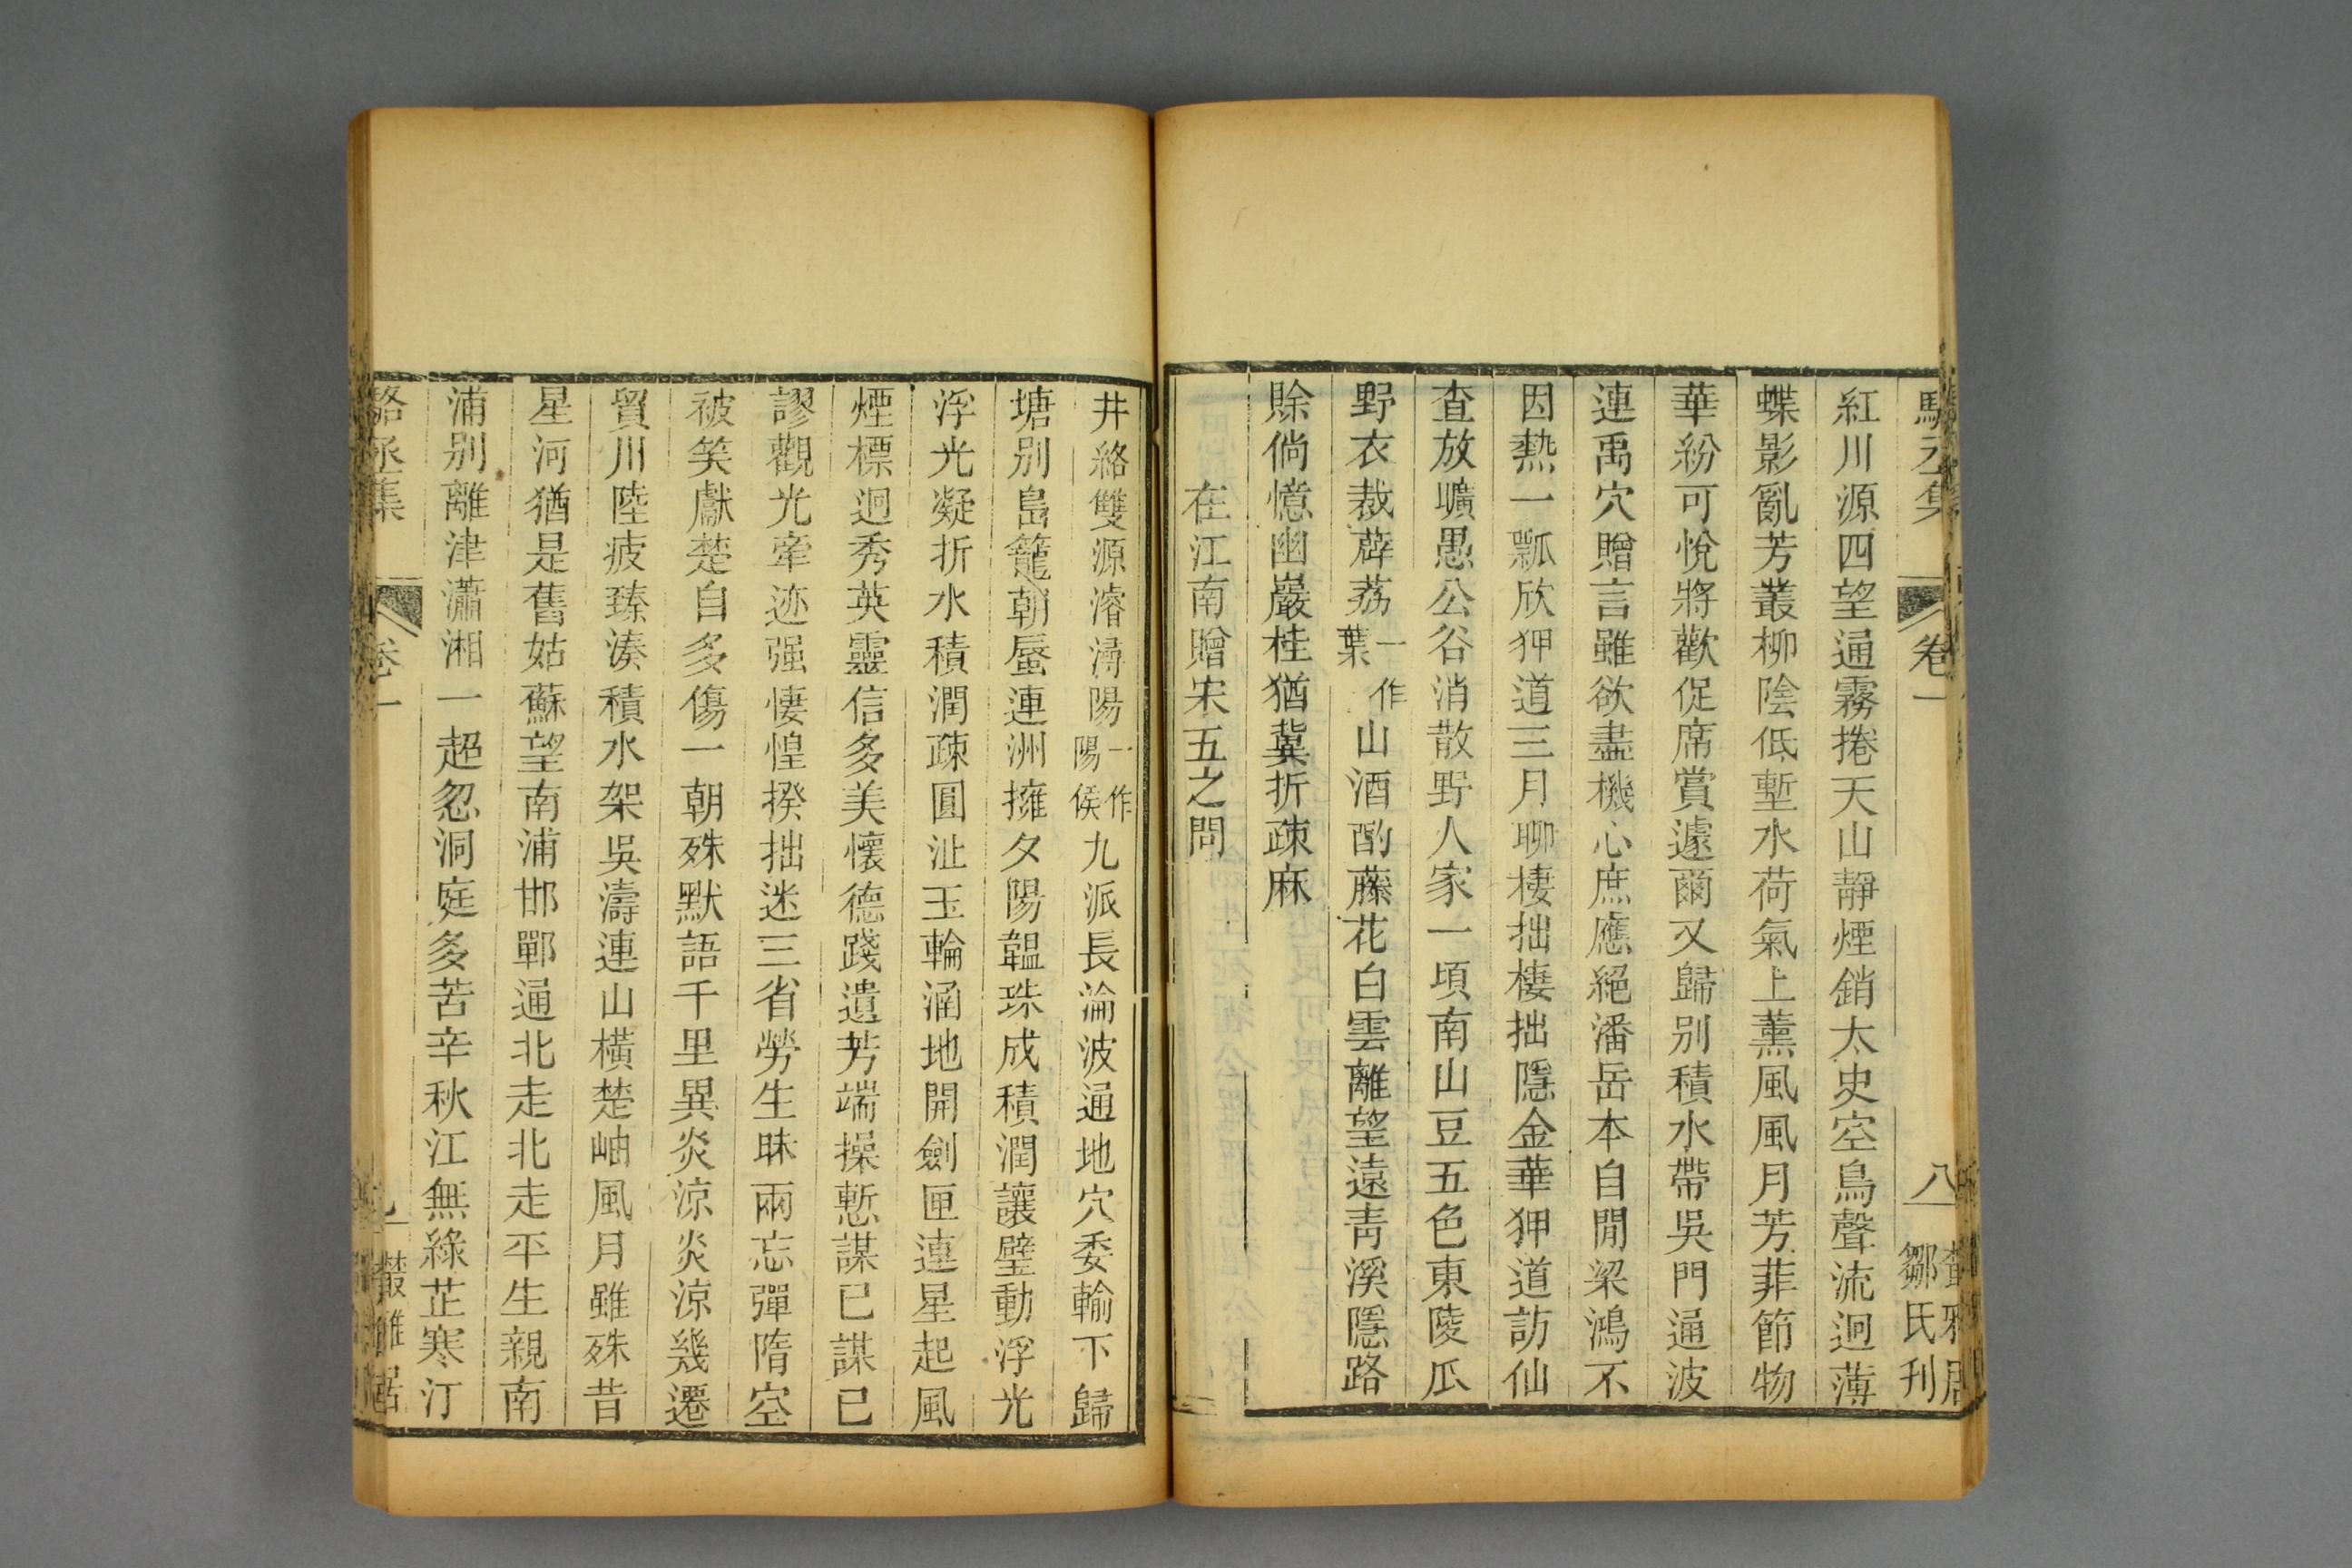 駱丞集 卷一 八 鄒氏刊
紅川源四望通霧捲天山靜煙銷太史空鳥聲流迥薄
蝶影亂芳叢柳陰低塹水荷氣上薰風風月芳菲節物
華紛可悅將歡促席賞遽爾又歸別積水帶吳門通波
連禹穴贈言雖欲盡機心庶應絕潘岳本自閒梁鴻不
因熱一瓢欣狎道三月聊棲拙棲拙隱金華狎道訪仙
查放曠愚公谷消散野人家一頃南山豆五色東陵瓜
野衣裁薜荔一作葉山酒酌藤花白雲離望遠青溪隱路
賒倘憶幽巖桂猶冀折疎麻
在江南贈宋五之問
井絡雙源濬潯陽一作陽侯九派長淪波通地穴委輸下歸
塘別島籠朝蜃連洲擁夕陽韞珠成積潤讓璧動浮光
浮光凝折水積潤疎圓沚玉輪涵地開劍匣連星起風
煙標迥秀英靈信多美懷德踐遺芳端操慙謀已謀已
謬觀光牽迹强悽惶揆拙迷三省勞生昧兩忘彈隋空
被笑獻楚自多傷一朝殊默語千里異炎涼炎涼幾遷
貿川陸疲臻湊積水架吳濤連山橫楚岫風月雖殊昔
星河猶是舊姑蘇望南浦邯鄲通北走北走平生親南
浦別離津瀟湘一超忽洞庭多苦辛秋江無綠芷寒汀
駱丞集 卷一